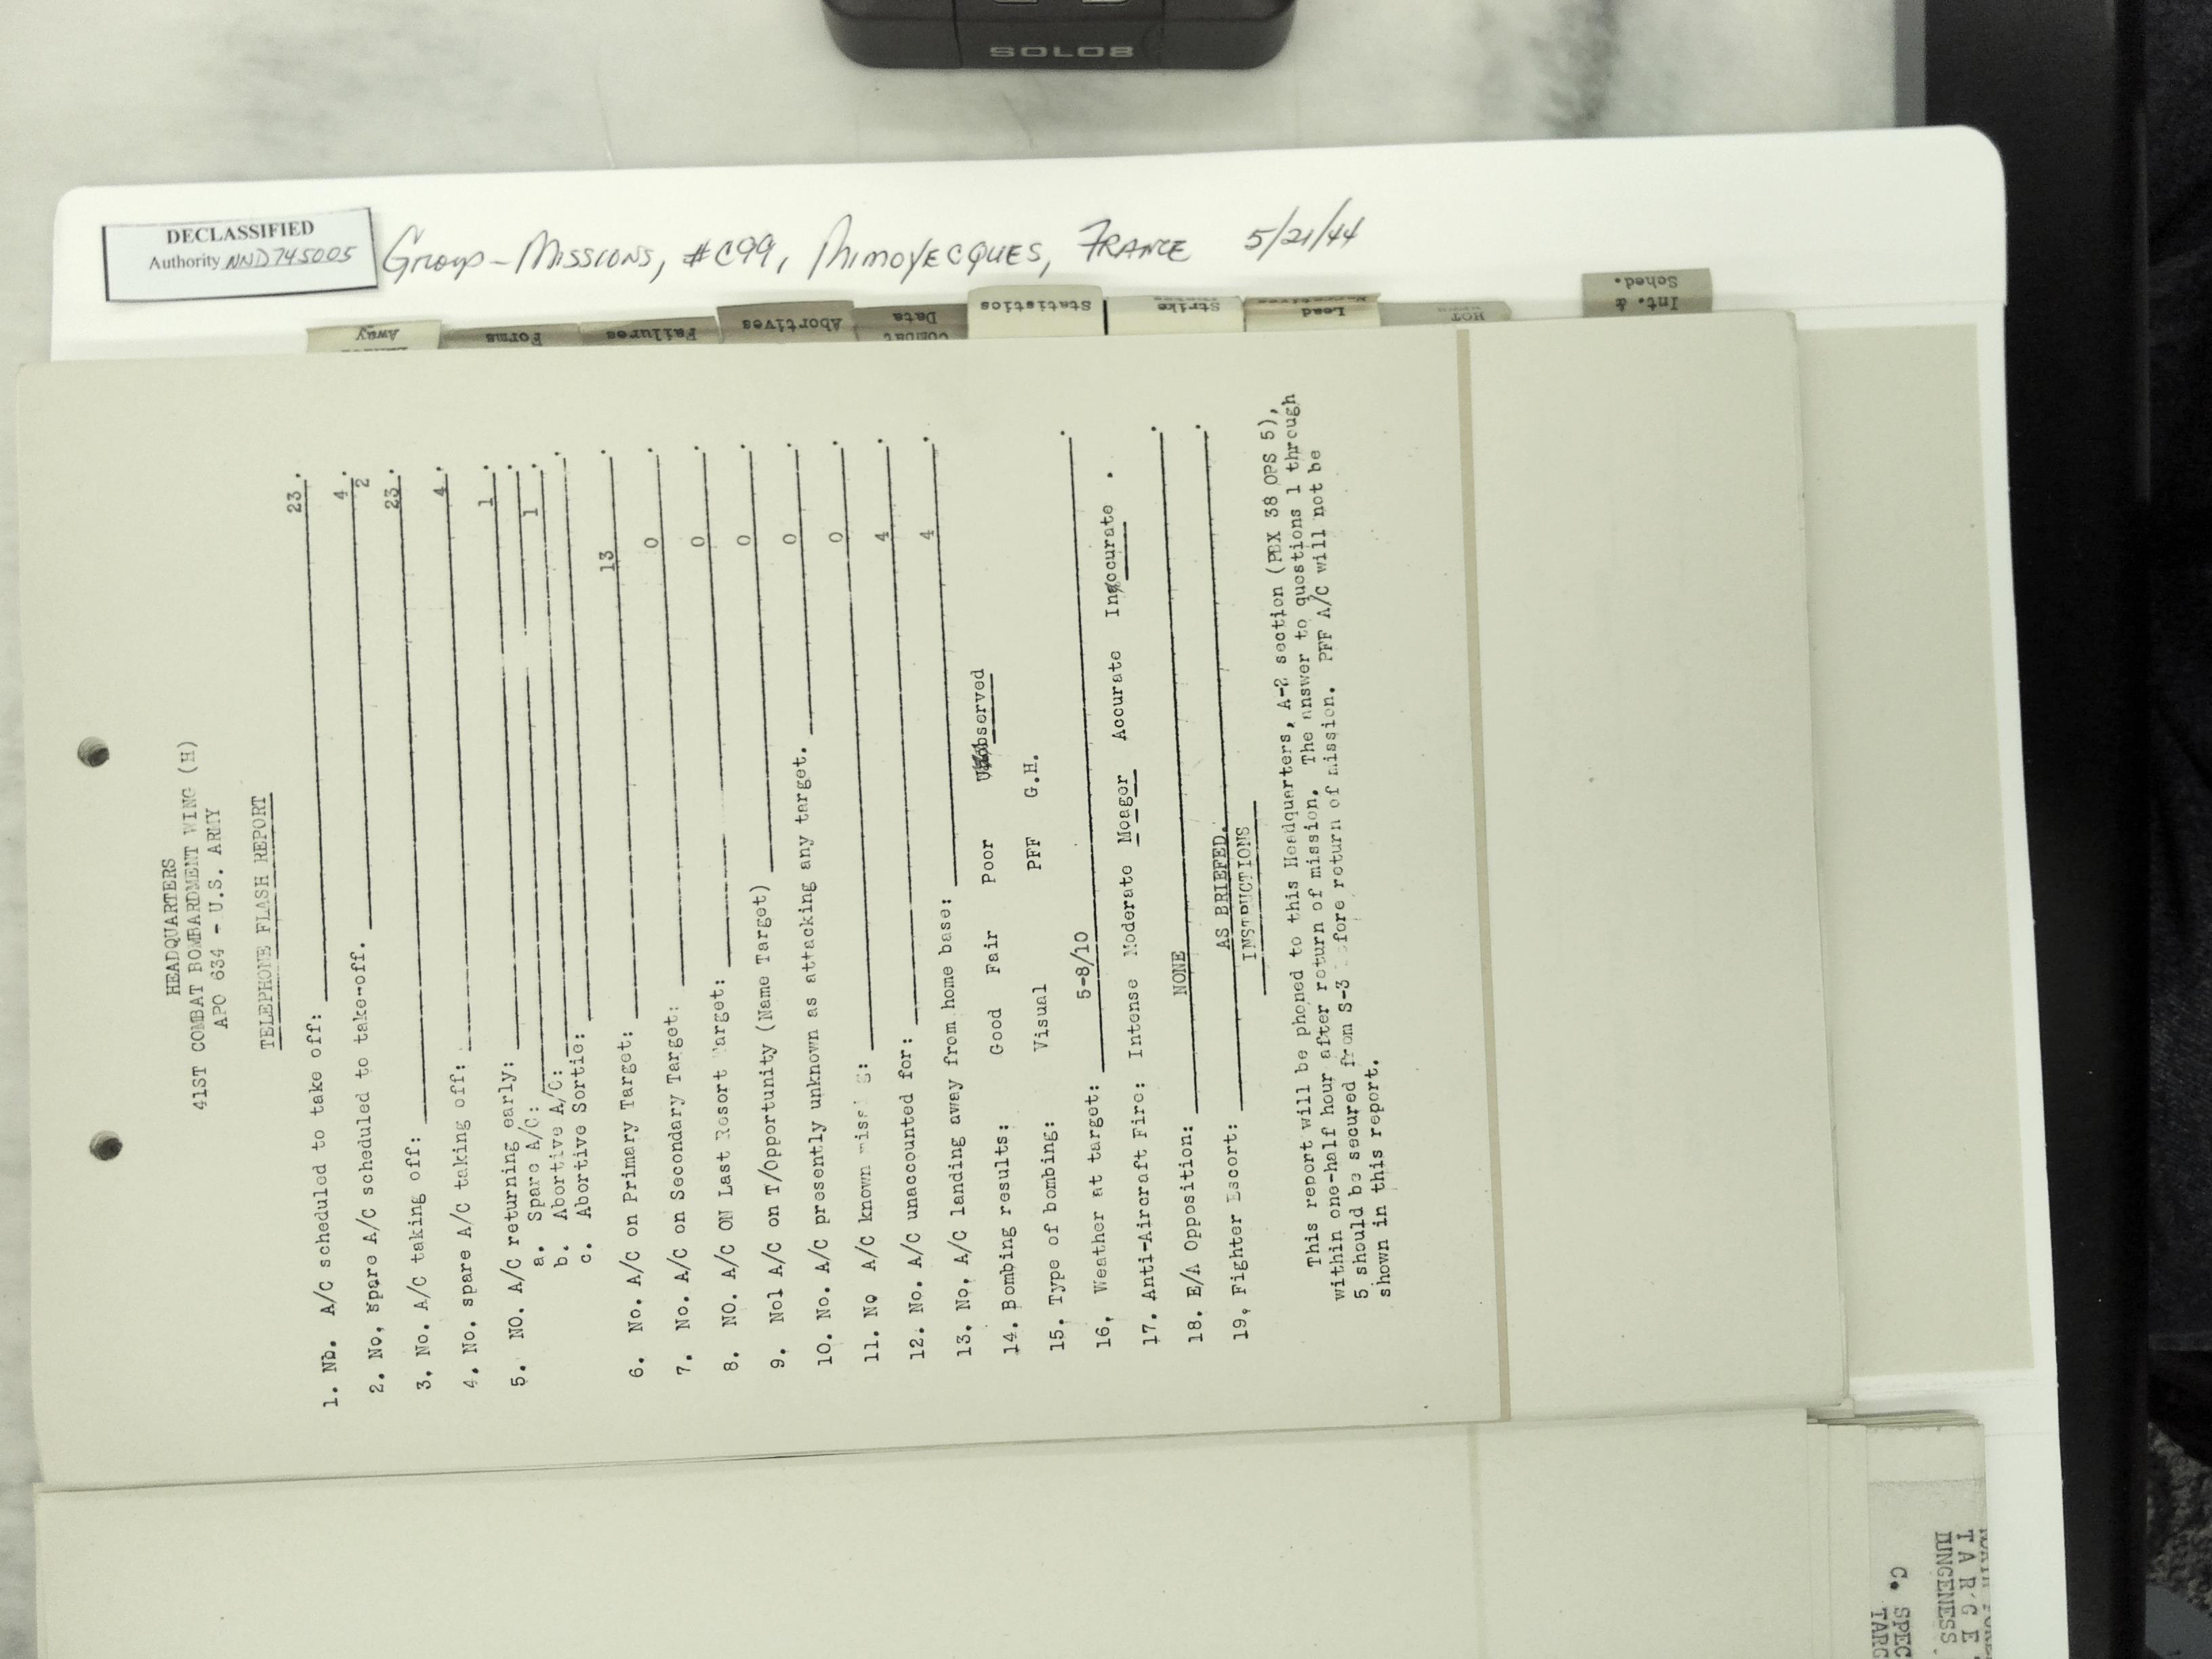 SOLO8
DECLASSIFIED
Authority NND745005
Group-Missions, #C99, Mimoyecques, France 5/21/44
Away
Forms
Failures
Abortives
Combat Data
Statistics
Strike
Lead
HOT
Int. & Sched.
HEADQUARTERS
41ST COMBAT BOMBARDMENT WING (H)
APO 634 - U.S. ARMY
TELEPHONE FLASH REPORT
1. No. A/C scheduled to take off: 23.
2. No, spare A/C scheduled to take-off. 4.
2
3. No. A/C taking off: 23.
4. No. spare A/C taking off: 4.
5. NO. A/C returning early: 1.
a. Spare A/C: .
b. Abortive A/C: 1.
c. Abortive Sortie: .
6. No. A/C on Primary Target: 13.
7. No. A/C on Secondary Target: 0.
8. NO. A/C ON Last Resort Target: 0.
9. Nol A/C on T/Opportunity (Name Target) 0.
10. No. A/C presently unknown as attacking any target. 0.
11. No A/C known missing: 0.
12. No. A/C unaccounted for: 4.
13. No, A/C landing away from home base: 4.
14. Bombing results: Good Fair Poor Unobserved
15. Type of bombing: Visual PFF G.H.
16, Weather at target: 5-8/10.
17. Anti-Aircraft Fire: Intense Moderate Meager Accurate Inaccurate.
18. E/A Opposition: NONE.
19, Fighter Escort: AS BRIEFED.
INSTRUCTIONS
This report will be phoned to this Headquarters, A-2 section (PBX 38 OPS 5),
within one-half hour after return of mission. The answer to questions 1 through
5 should be secured from S-3 before return of mission. PFF A/C will not be
shown in this report.
TARGE
DUNGENESS
C. SPEC
TARG